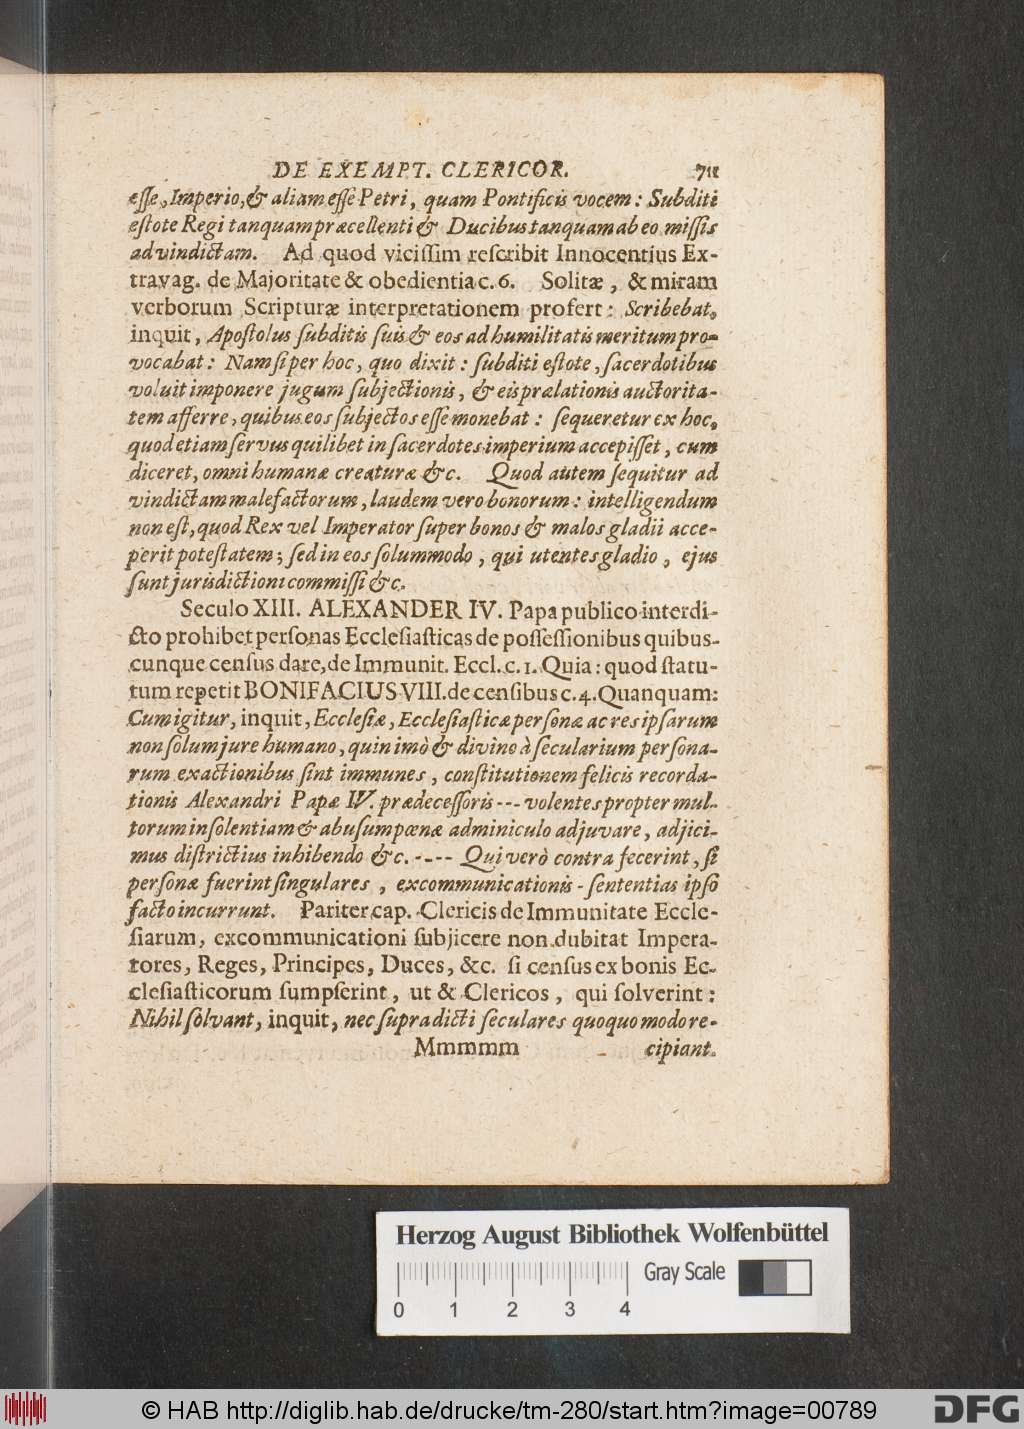 DE EXEMPT. CLERICOR. 711
eſſe, Imperio, & aliam eſſe Petri, quam Pontificis vocem: Subditi
eſtote Regi tanquam præcellenti & Ducibus tanquam ab eo miſſis
ad vindictam. Ad quod viciſſim reſcribit Innocentius Ex-
travag. de Majoritate & obedientia c. 6. Solitæ, & miram
verborum Scripturæ interpretationem profert: Scribebat,
inquit, Apoſtolus ſubditis ſuis & eos ad humilitatis meritum pro-
vocabat: Nam ſi per hoc, quo dixit: ſubditi eſtote, ſacerdotibus
voluit imponere jugum ſubjectionis, & eis prælationis auctorita-
tem afferre, quibus eos ſubjectos eſſe monebat: ſequeretur ex hoc,
quod etiam ſervus quilibet in ſacerdotes imperium accepiſſet, cum
diceret, omni humanæ creaturæ &c. Quod autem ſequitur ad
vindictam malefactorum, laudem vero bonorum: intelligendum
non eſt, quod Rex vel Imperator ſuper bonos & malos gladii acce-
perit poteſtatem; ſed in eos ſolummodo, qui utentes gladio, ejus
ſunt jurisdictioni commiſſi &c.
Seculo XIII. ALEXANDER IV. Papa publico interdi-
cto prohibet perſonas Eccleſiaſticas de poſſeſſionibus quibus-
cunque cenſus dare, de Immunit. Eccl. c. 1. Quia: quod ſtatu-
tum repetit BONIFACIUS VIII. de cenſibus c. 4. Quanquam:
Cum igitur, inquit, Eccleſiæ, Eccleſiaſticæ perſonæ ac res ipſarum
non ſolum jure humano, quinimò & divino à ſecularium perſona-
rum exactionibus ſint immunes, conſtitutionem felicis recorda-
tionis Alexandri Papæ IV. prædeceſſoris --- volentes propter mul-
torum inſolentiam & abuſum pœnæ adminiculo adjuvare, adjici-
mus diſtrictius inhibendo &c. ---- Qui verò contra fecerint, ſi
perſonæ fuerint ſingulares, excommunicationis - ſententias ipſo
facto incurrunt. Pariter cap. Clericis de Immunitate Eccle-
ſiarum, excommunicationi ſubjicere non dubitat Impera-
tores, Reges, Principes, Duces, &c. ſi cenſus ex bonis Ec-
cleſiaſticorum ſumpſerint, ut & Clericos, qui ſolverint:
Nihil ſolvant, inquit, nec ſupradicti ſeculares quoquo modo re-
Mmmmm cipiant.
Herzog August Bibliothek Wolfenbüttel
Gray Scale
0 1 2 3 4
© HAB http://diglib.hab.de/drucke/tm-280/start.htm?image=00789
DFG